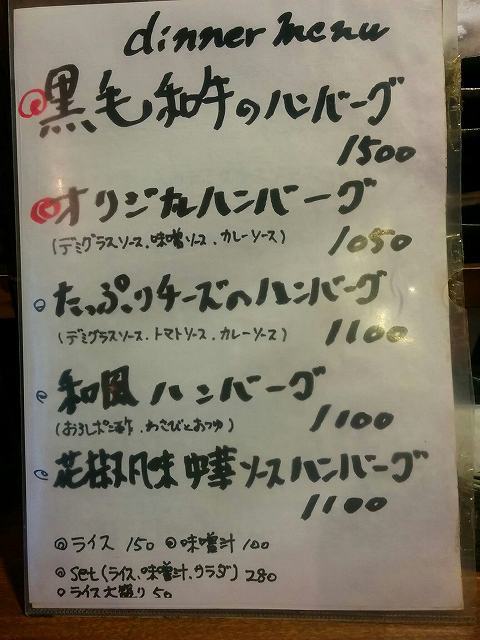 dinner menu
◎黒毛和牛のハンバーグ
1500
◎オリジナルハンバーグ
(デミグラスソース.味噌ソース.カレーソース)
1050
○たっぷりチーズのハンバーグ
(デミグラスソース.トマトソース.カレーソース)
1100
○和風ハンバーグ
(おろしポン酢.わさびとおつゆ)
1100
○花椒風味中華ソースハンバーグ
1100
◎ライス 150 ◎味噌汁 100
◎set(ライス.味噌汁.サラダ) 280
○ライス大盛り 50